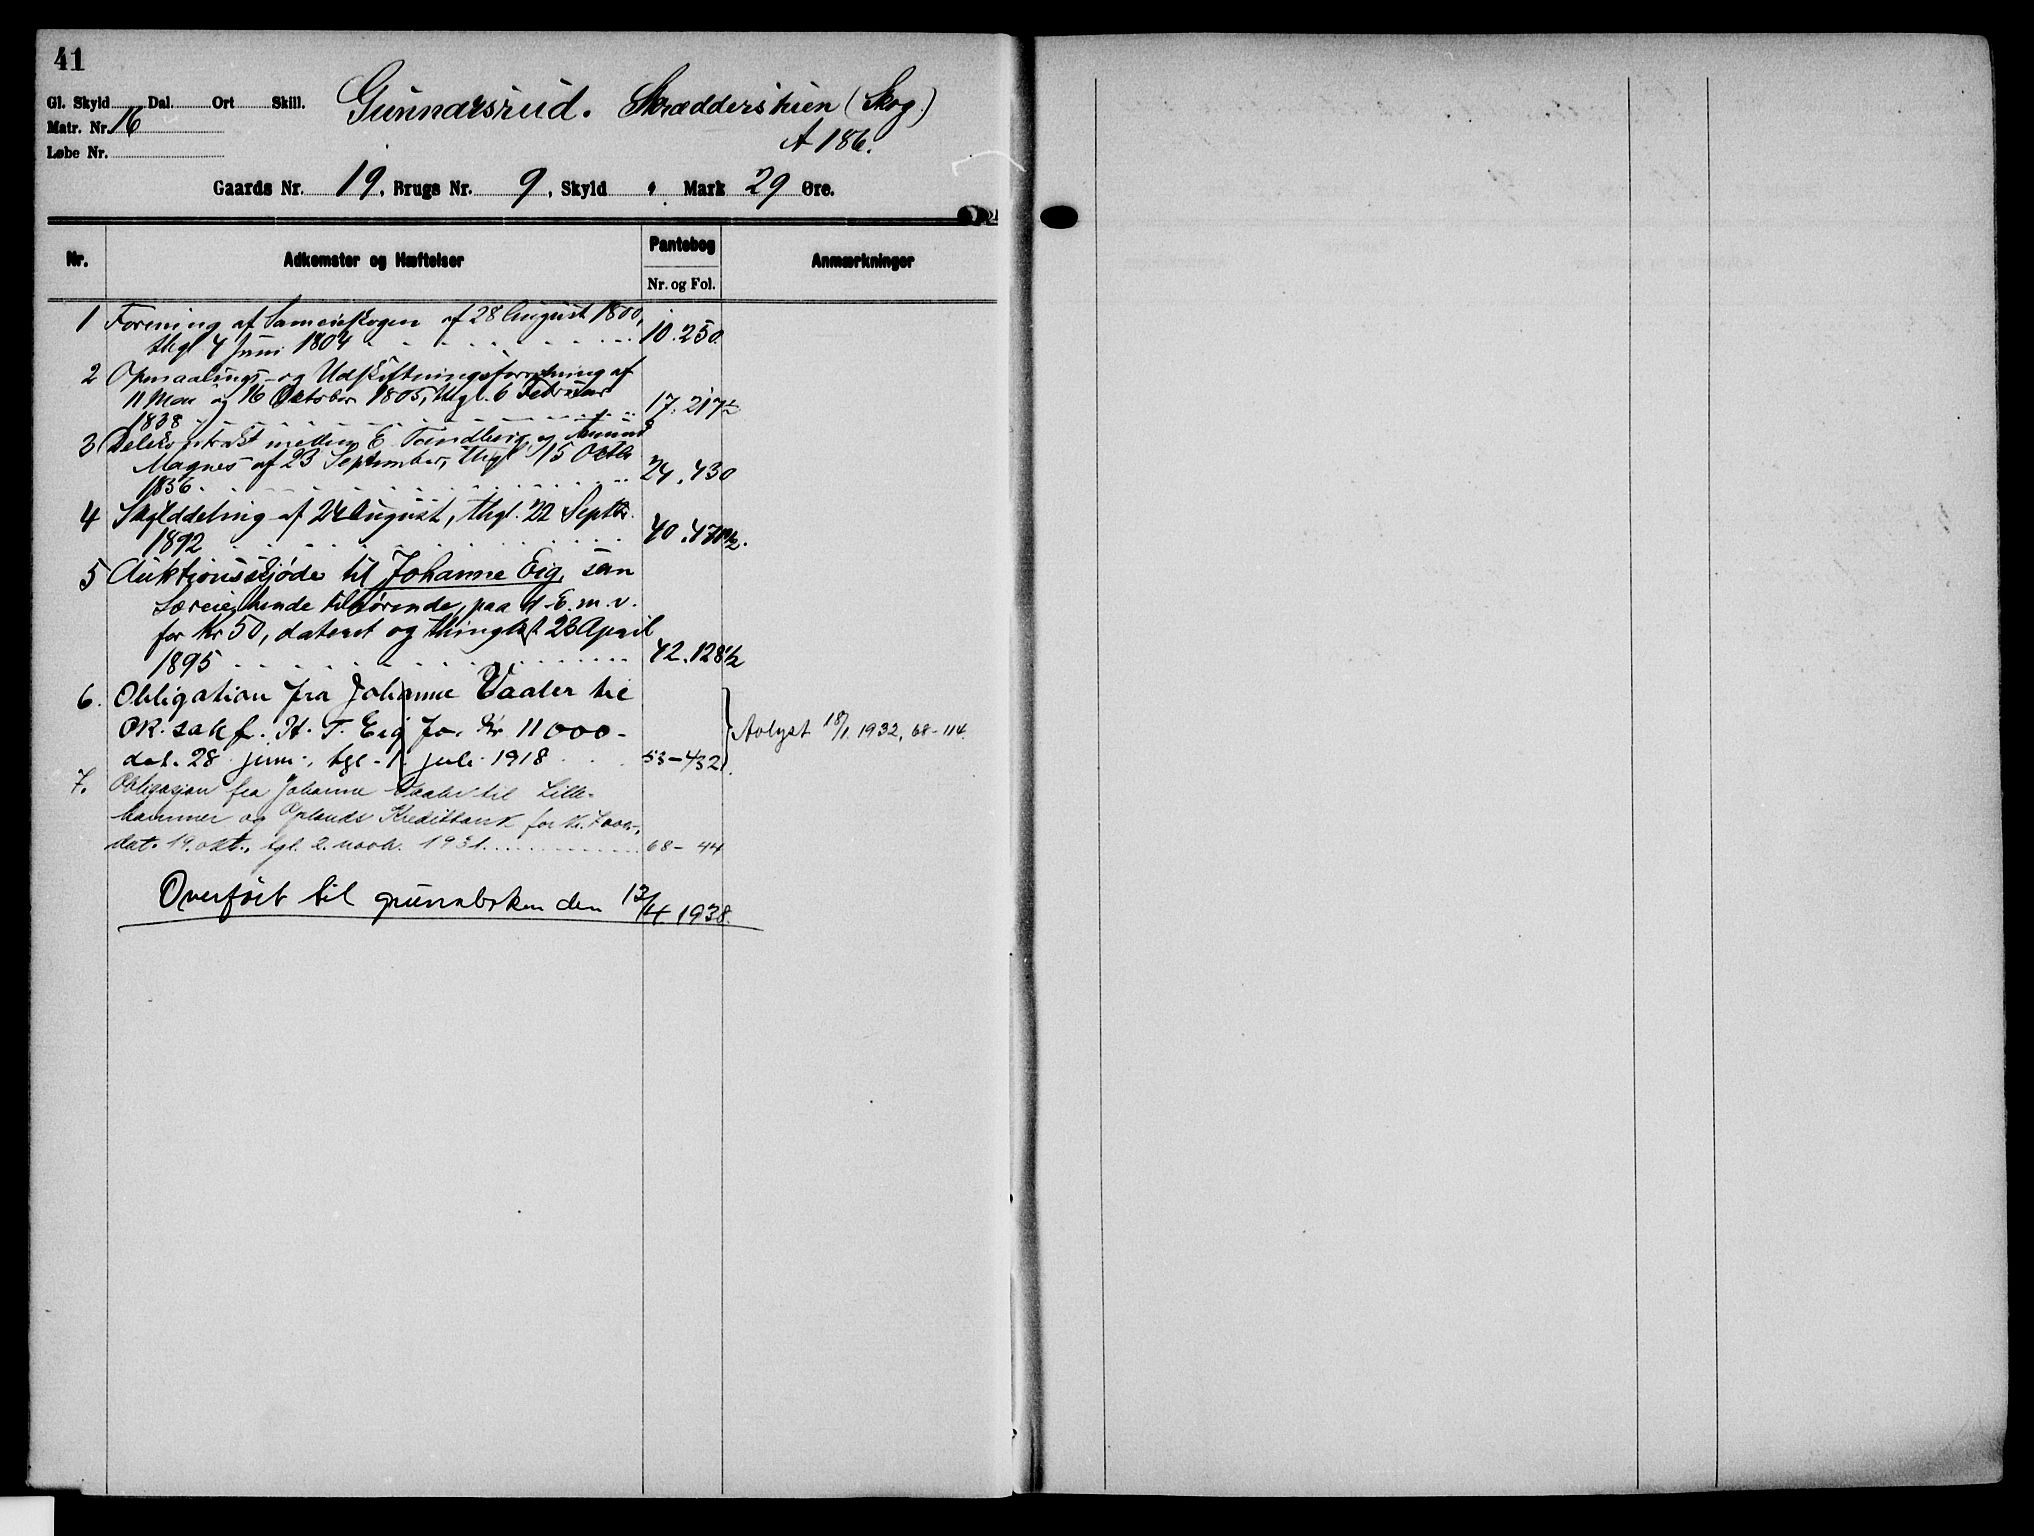 41
Gl. Skyld Dal. Ort Skill. Gunnarsrud. Skrædderstuen (Skog.)
Matr. Nr. 16 A 186.
Løbe Nr.
Gaards Nr. 19, Brugs Nr. 9, Skyld Mark 29 Øre.
Nr. Adkomster og Hæftelser Pantebog Anmærkninger
Nr. og Fol.
1 Forening af Sameieskogen af 28 August 1800,
thgl 4 Juni 1804 10.250
2 Opmaalings- og Udskiftningsforretning af
11 Mai og 16 Oktober 1805, thgl. 6 Februar
1838 17.217
3 Delekontrakt mellem E. Tandberg og Amund
Magnes af 23 September, thgl 15 Oktbr
1856 24.430
4 Skylddeling af 24 August, thgl. 22 Septbr.
1892 40.471½.
5 Auktionsskjøde til Johanne Eig, som
Særeie, hende tilhørende, paa d. E. m. v.
for Kr 50, dateret og thinglæst 23 April
1895 42.128½
6. Obligation fra Johanne Vaaler til
OR. sakf. H. T. Eig for Kr 11000-
dat. 28 juni, tgl. 1 juli 1918 53-432 Avlyst 18/1 1932, 68-114.
7. Obligasjon fra Johanne Vaaler til Lille-
hammer og Oplands Kreditbank for kr. 7000-,
dat. 19. okt., tgl. 2. novb. 1931. 68-44
Overført til grunnboken den 13/4 1938.